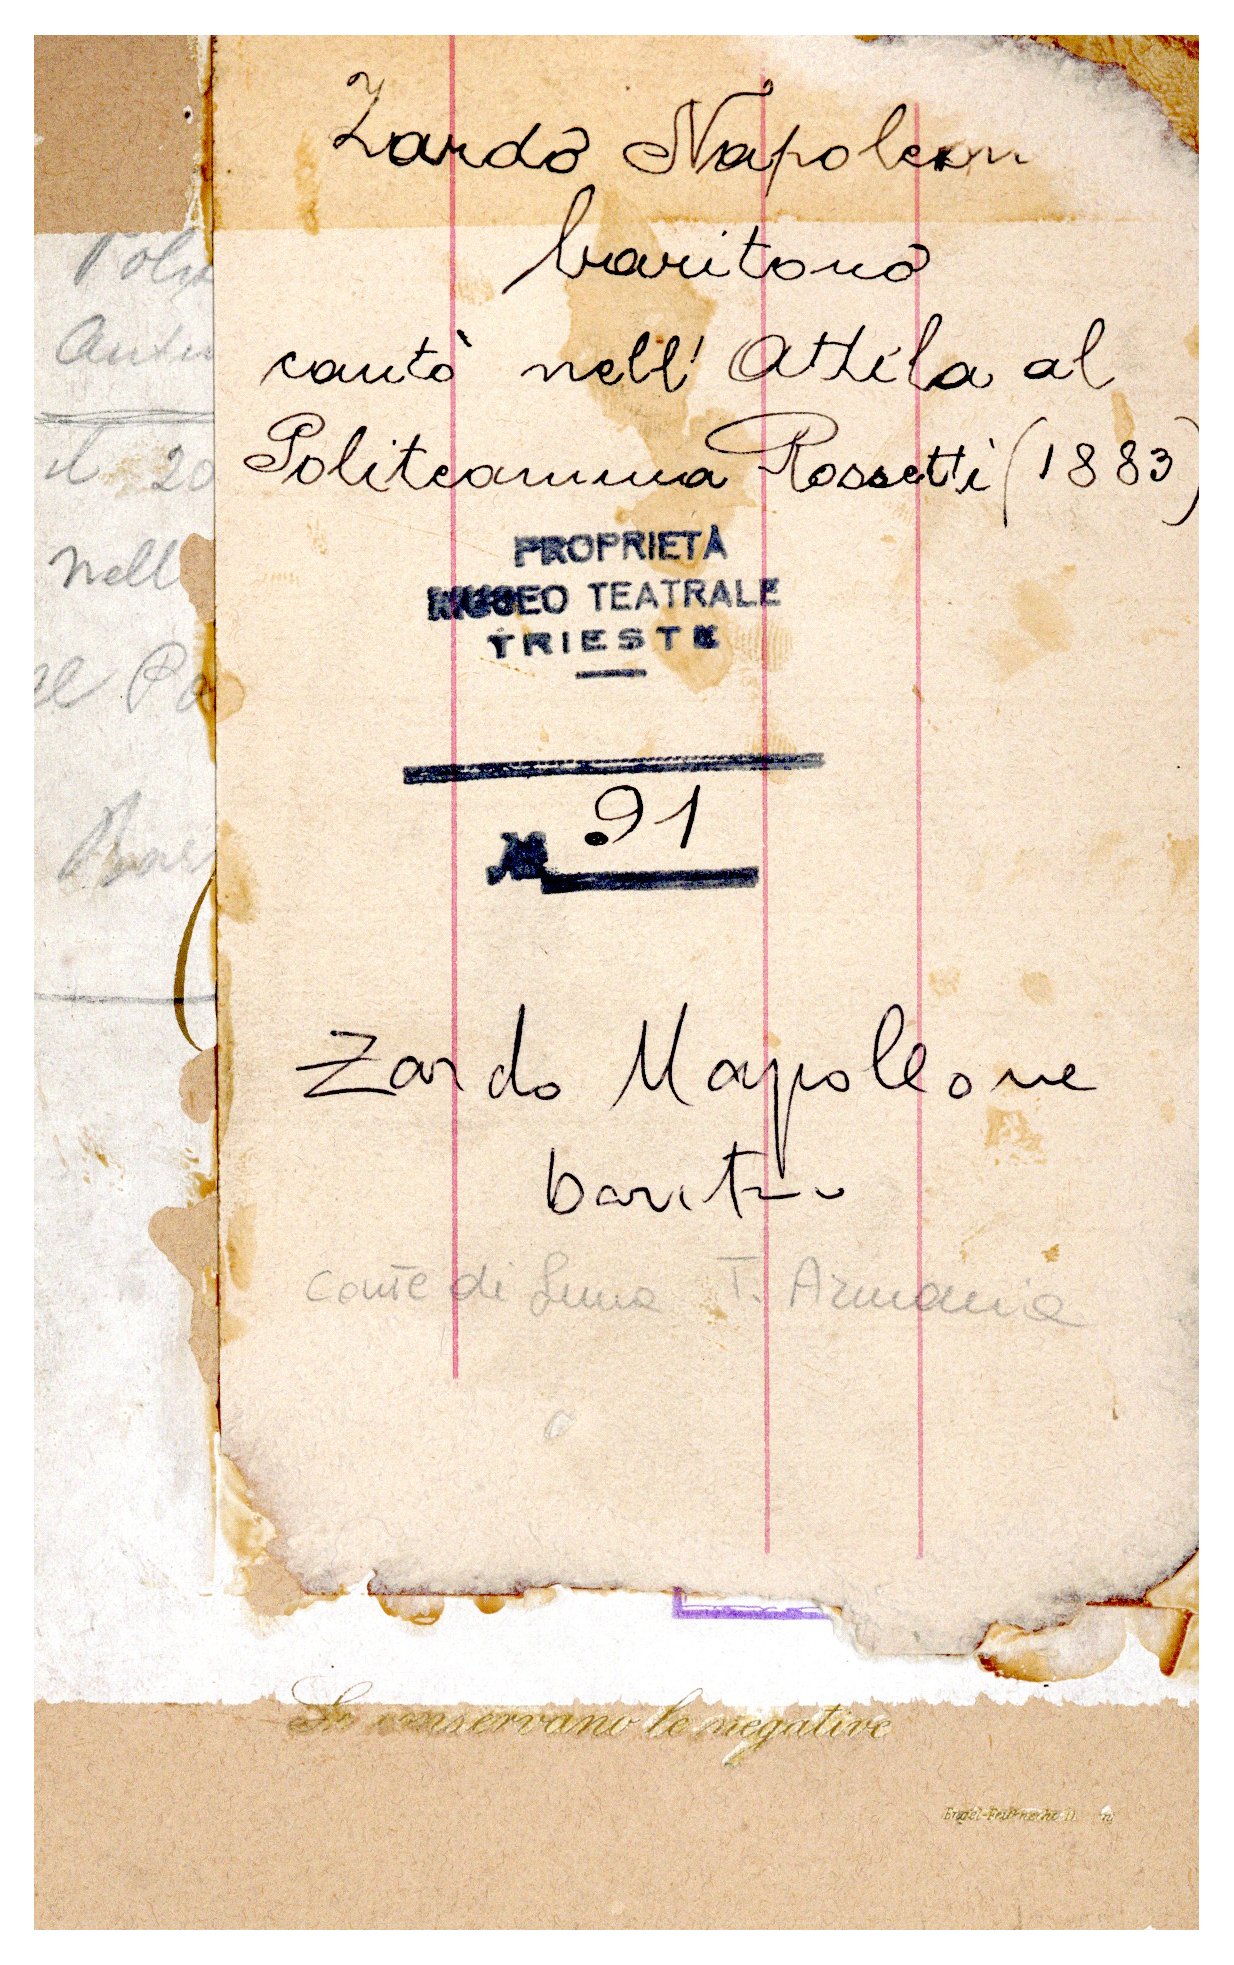 Zardo Napoleon
baritono
cantò nell' Attila al
Politeamma Rossetti (1883)
PROPRIETÀ
MUSEO TEATRALE
TRIESTE
N. 91
Zardo Napoleone
baritono
conte di Luna T. Armonia
il 20
nell
al Po
Si conservano le negative